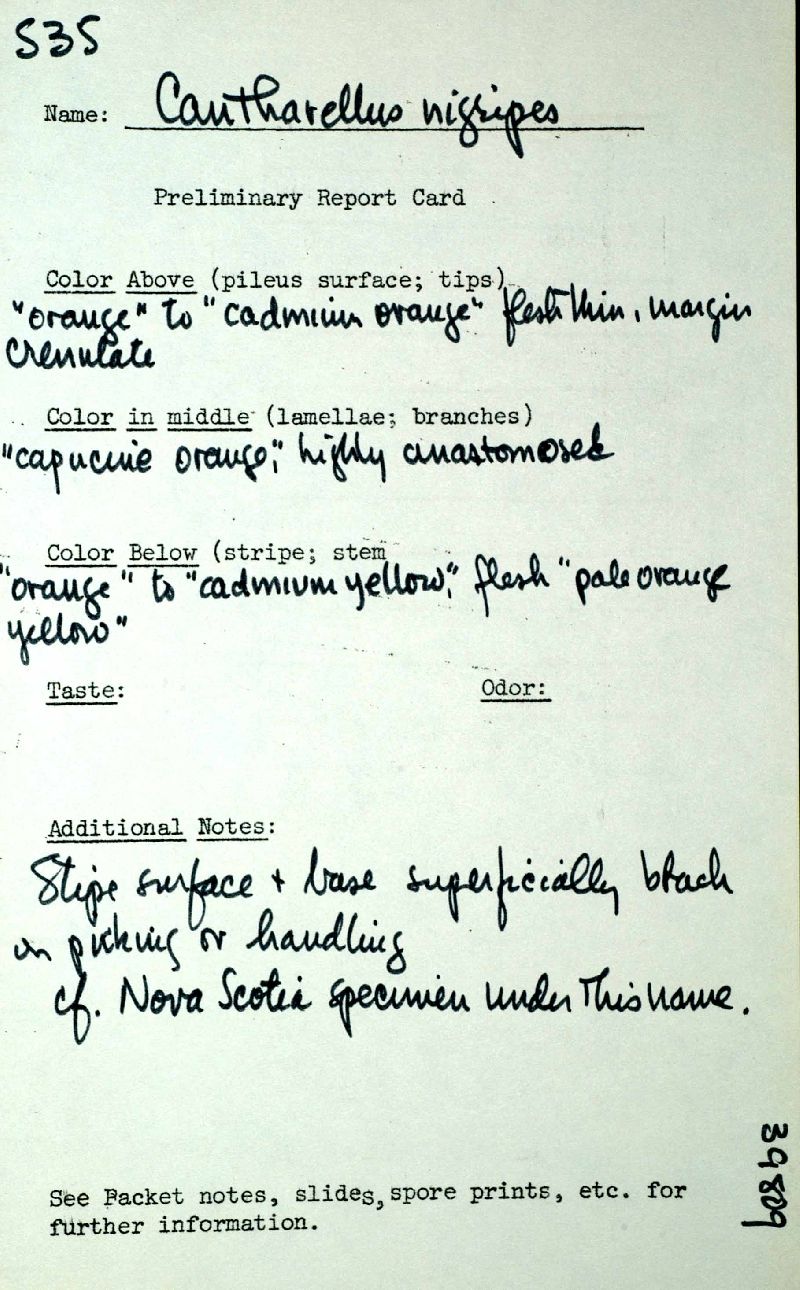 535
Name: Cantharellus nigripes
Preliminary Report Card
Color Above (pileus surface; tips)
"orange" to "cadmium orange" flesh thin, margin
crenulate
Color in middle (lamellae; branches)
"capucine orange;" highly anastomosed
Color Below (stripe; stem
"orange" to "cadmium yellow;" flesh "pale orange
yellow"
Taste: Odor:
Additional Notes:
Stipe surface + base superficially black
on picking or handling
cf. Nova Scotia specimen under this name.
39809
See Packet notes, slides, spore prints, etc. for
further information.